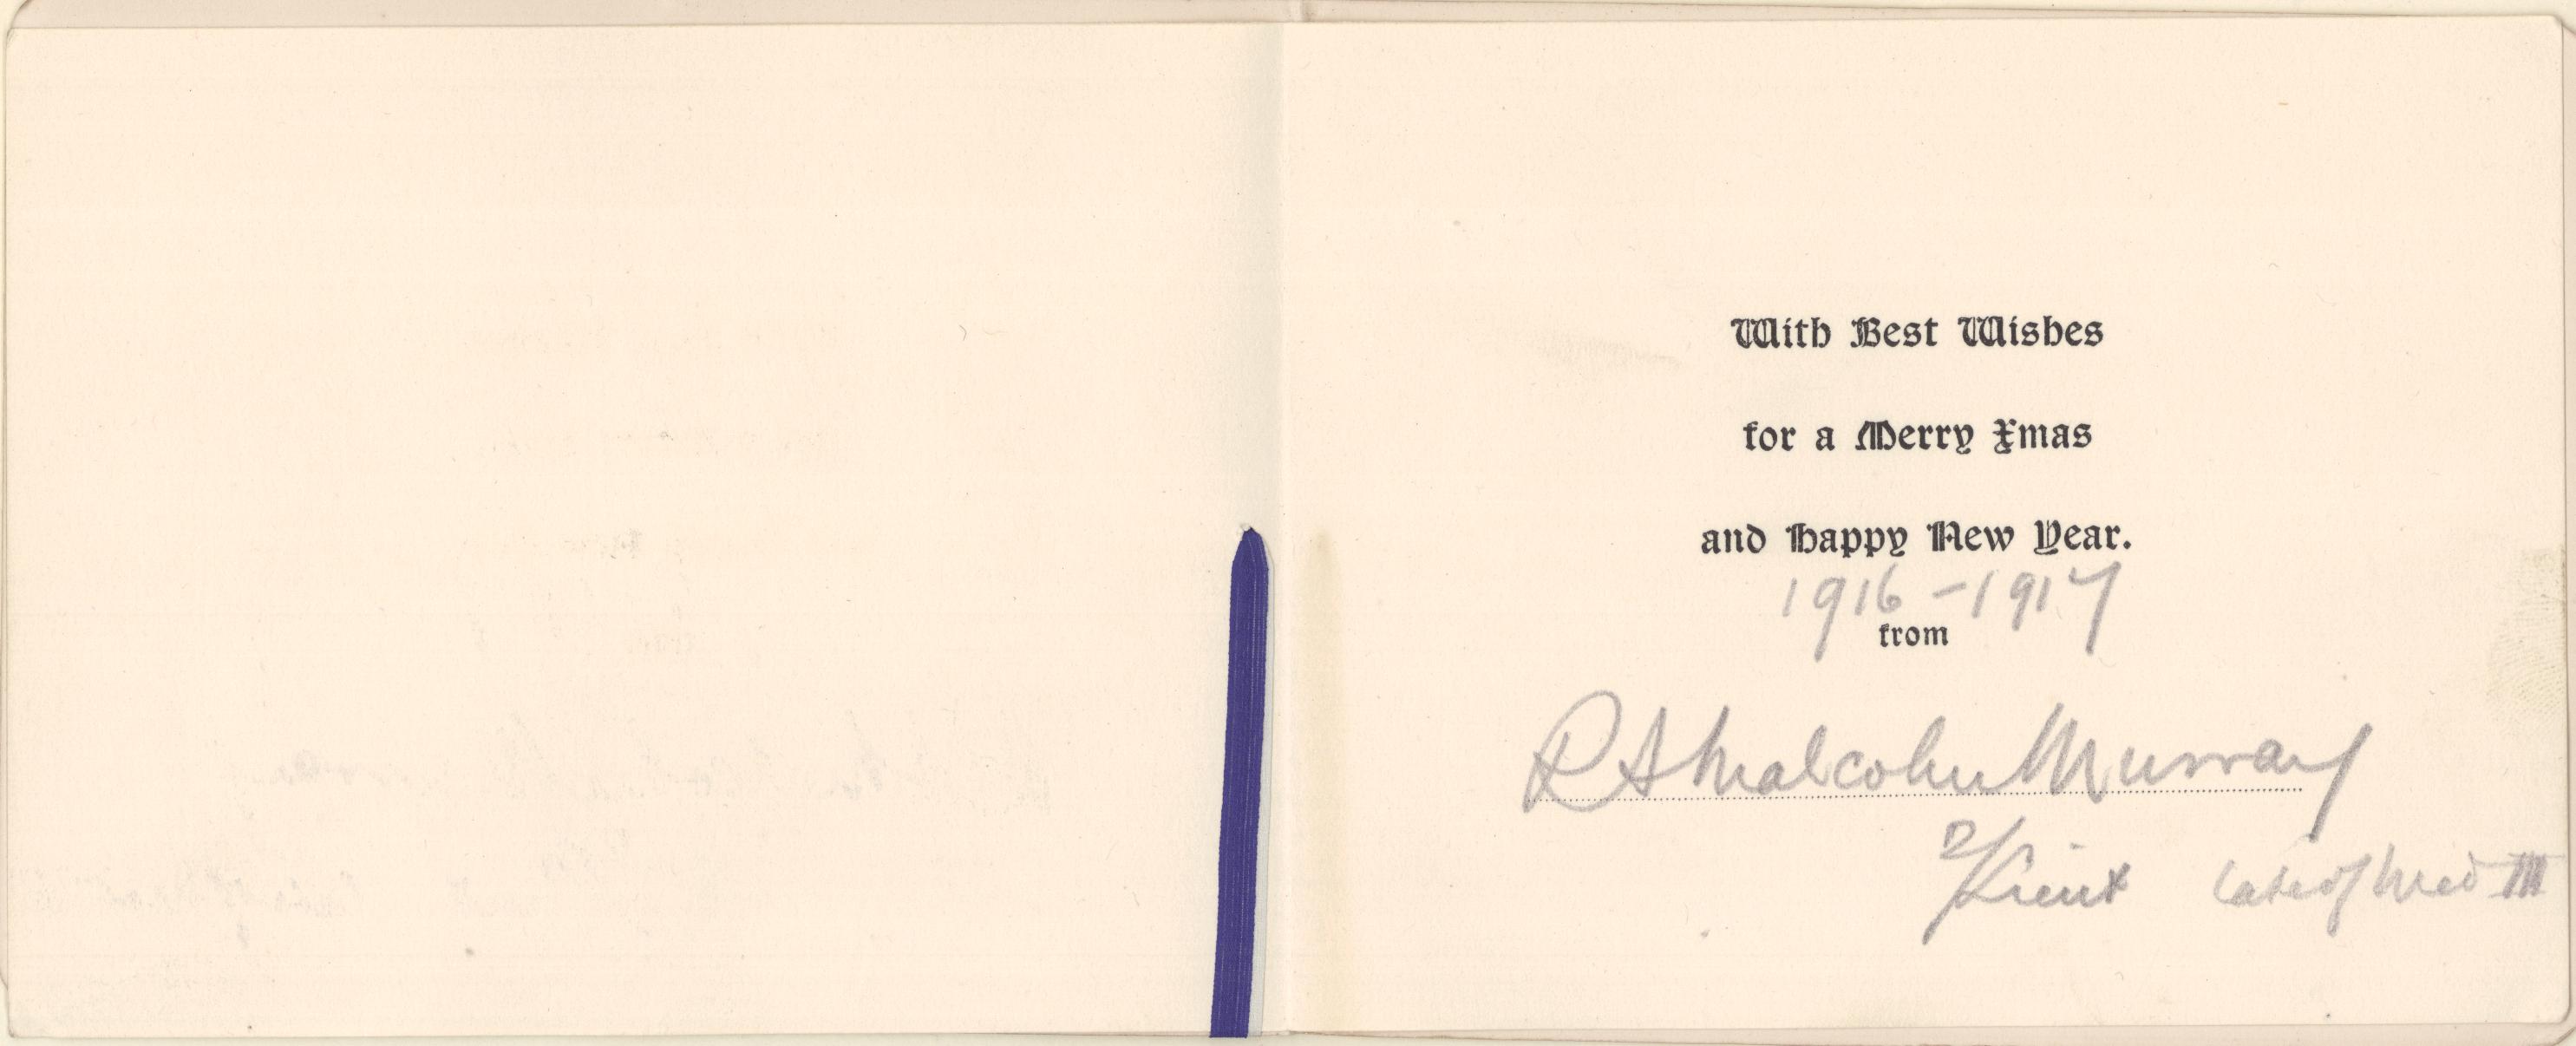 With Best Wishes
for a Merry Xmas
and Happy New Year.
1916-1917
from
R S Malcolm Murray
2/Lieut late of Med III